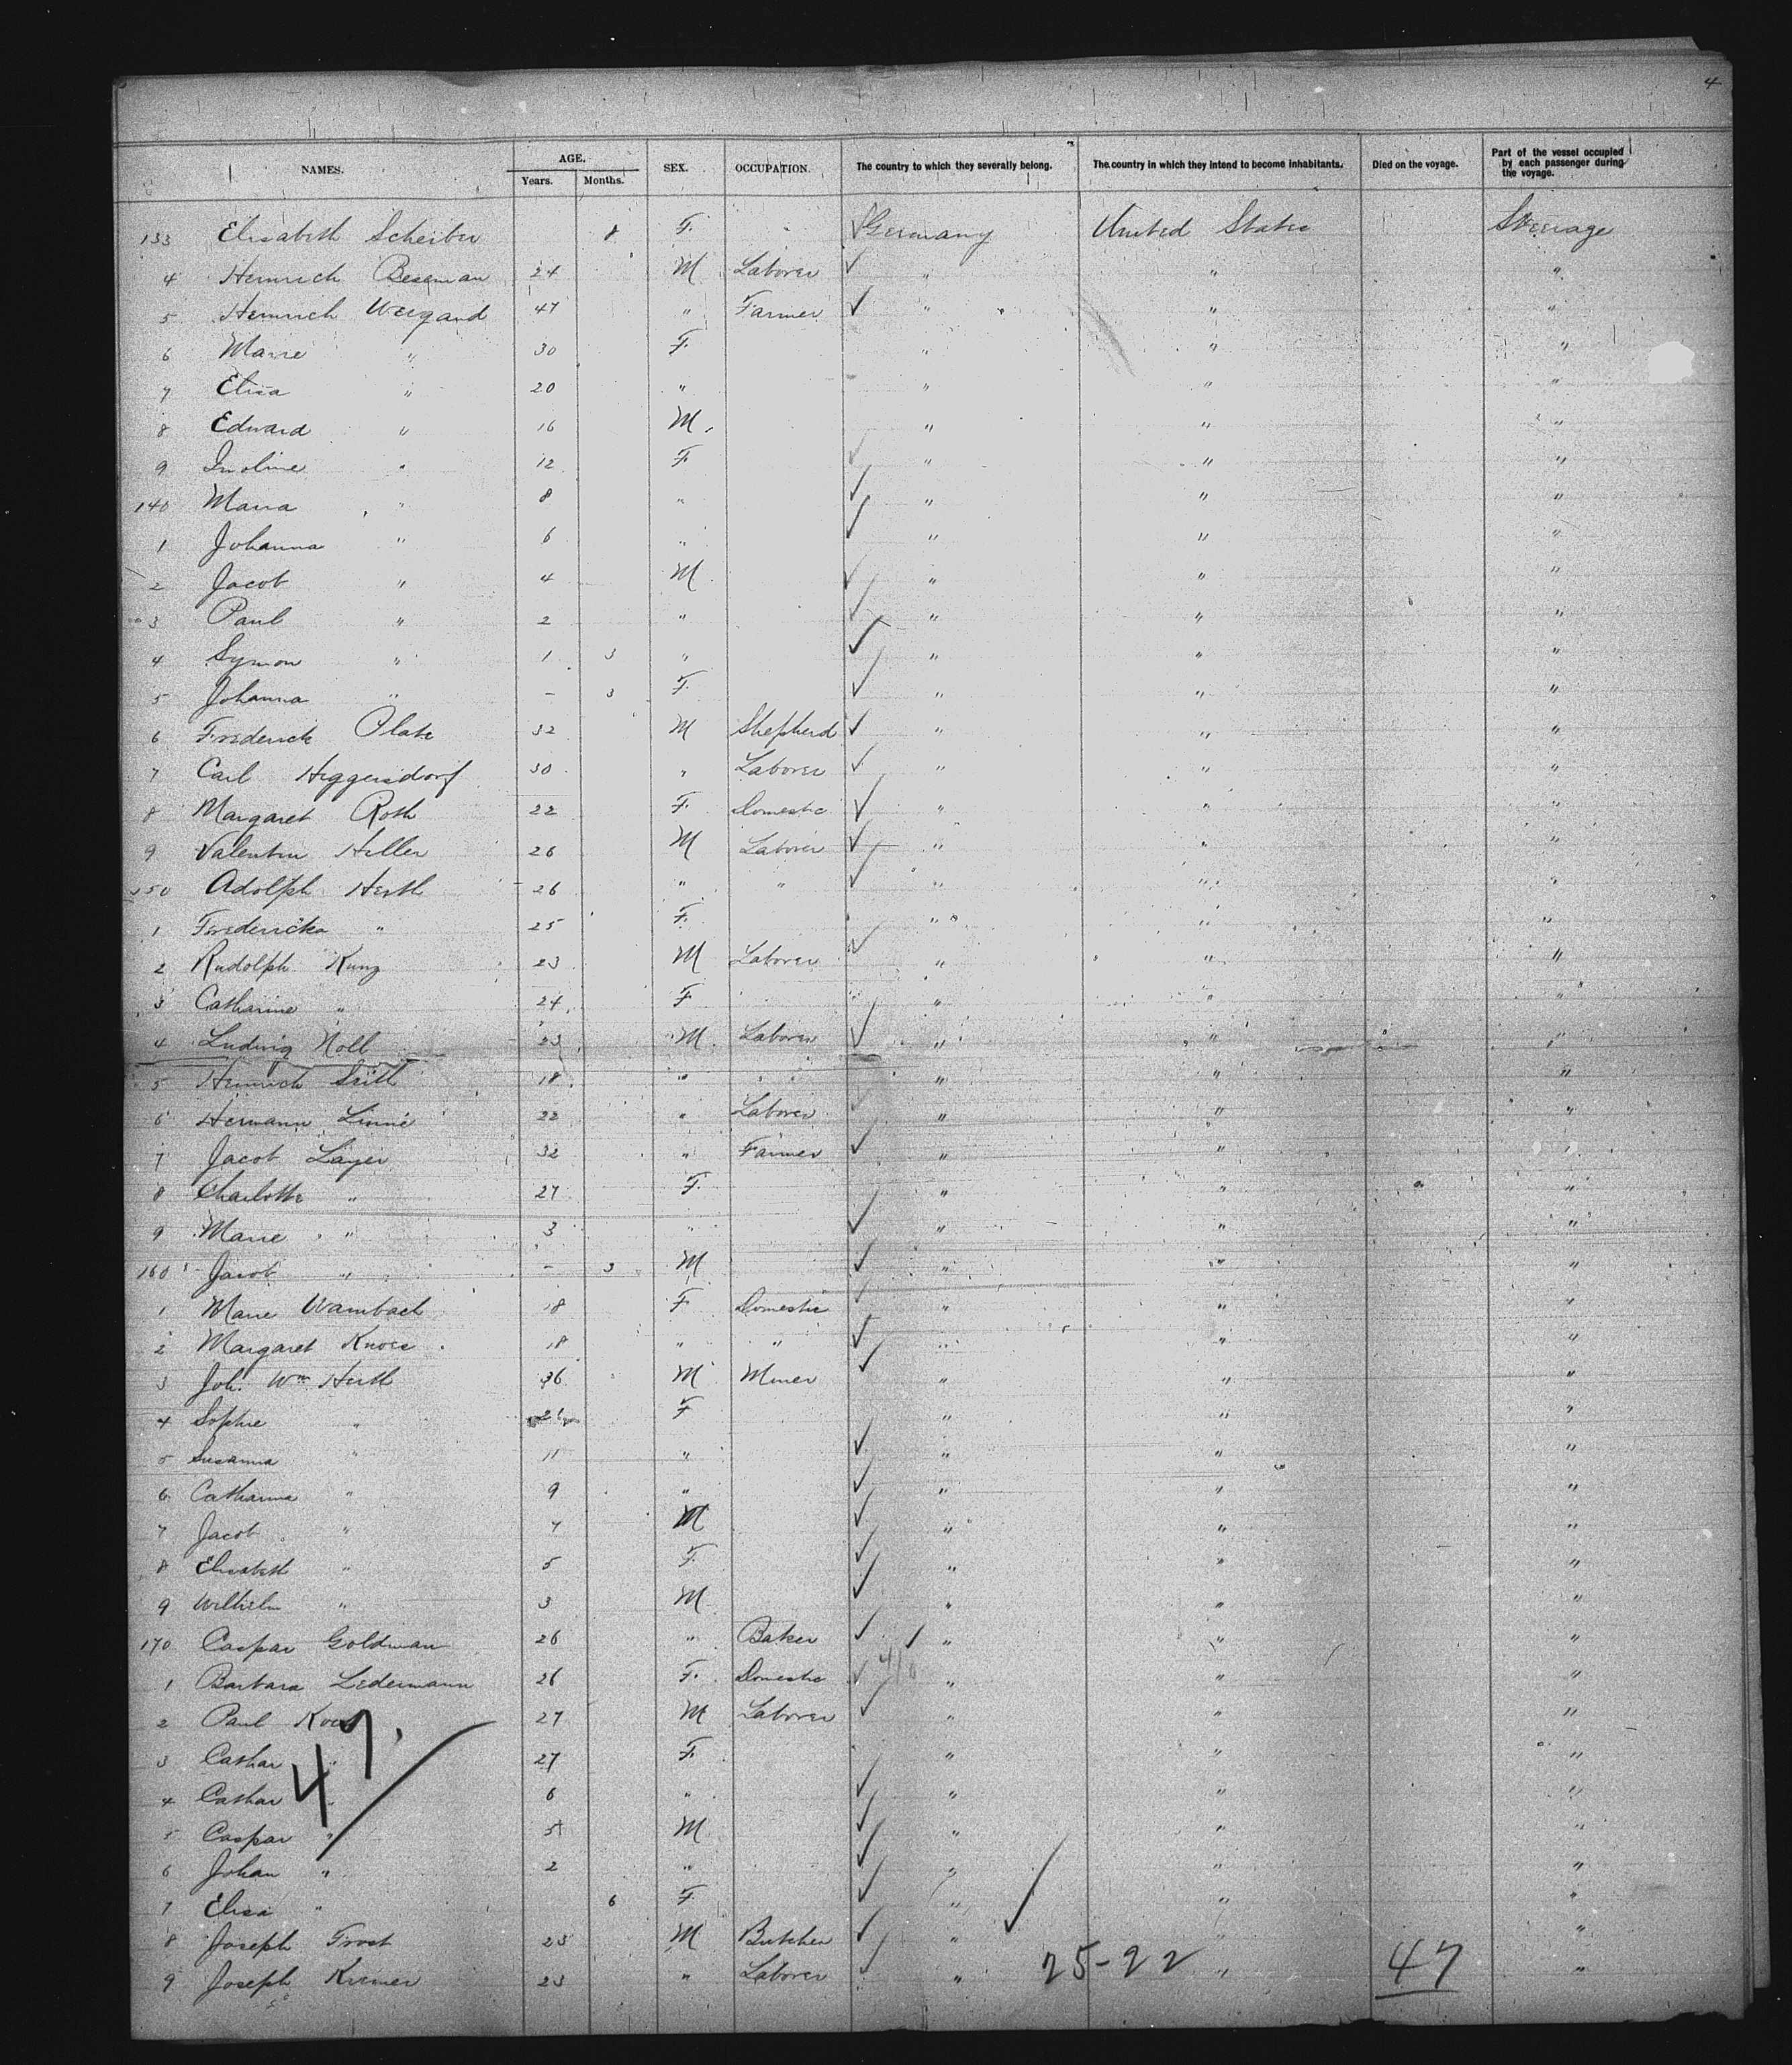 4
NAMES. AGE. Years. Months. SEX. OCCUPATION. The country to which they severally belong. The country in which they intend to become inhabitants. Died on the voyage. Part of the vessel occupied by each passenger during the voyage.
133 Elisabeth Scheiber 8 F. Germany United States Steerage
4 Heinrich Beseman 24 M Laborer " " "
5 Heinrich Weigand 47 " Farmer " " "
6 Marie " 30 F. " " "
7 Elisa " 20 " " " "
8 Edward " 16 M. " " "
9 " 12 F " " "
140 Maria " 8 " " " "
1 Johanna " 6 " " " "
2 Jacob " 4 M " " "
3 Paul " 2 " " " "
4 Symon " 1 3 " " " "
5 Johanna " - 3 F. " " "
6 Frederick Plate 32 M Shepherd " " "
7 Carl Heggersdorf 30 " Laborer " " "
8 Margaret Roth 22 F. Domestic " " "
9 Valentin Heller 26 M Laborer " " "
150 Adolph Herth 26 " " " " "
1 Fredericka " 25 F. " " "
2 Rudolph Kunz 23 M Laborer " " "
3 Catharine " 24 F " " "
4 Ludwig Noll 23 M. Laborer " " "
5 Heinrich 18 " " " "
6 Hermann Linne 22 " Laborer " " "
7 Jacob Layer 32 " Farmer " " "
8 Charlotte " 27 F. " " "
9 Marie " 3 " " " "
160 Jacob " - 3 M " " "
1 Marie Wambach 18 F Domestic " " "
2 Margaret 18 " " " " "
3 Joh. Wm Herth 36 M Miner " " "
4 Sophie " F " " "
5 Susanna " 11 " " " "
6 Catharina " 9 " " " "
7 Jacob " 7 M " " "
8 Elisabeth " 5 F. " " "
9 Wilhelm " 3 M " " "
170 Caspar Goldman 26 " Baker " " "
1 Barbara Ledermann 26 F. Domestic " " "
2 Paul 27 M Laborer " " "
3 Cathar " 27 F. " " "
4 Cathar " 6 " " " "
5 Caspar " 5 M " " "
6 Johan " 2 " " " "
7 Elisa " 6 F. " " "
8 Joseph Frost 23 M Butcher " " "
9 Joseph Kremer 23 " Laborer " " "
47.
25-22 47